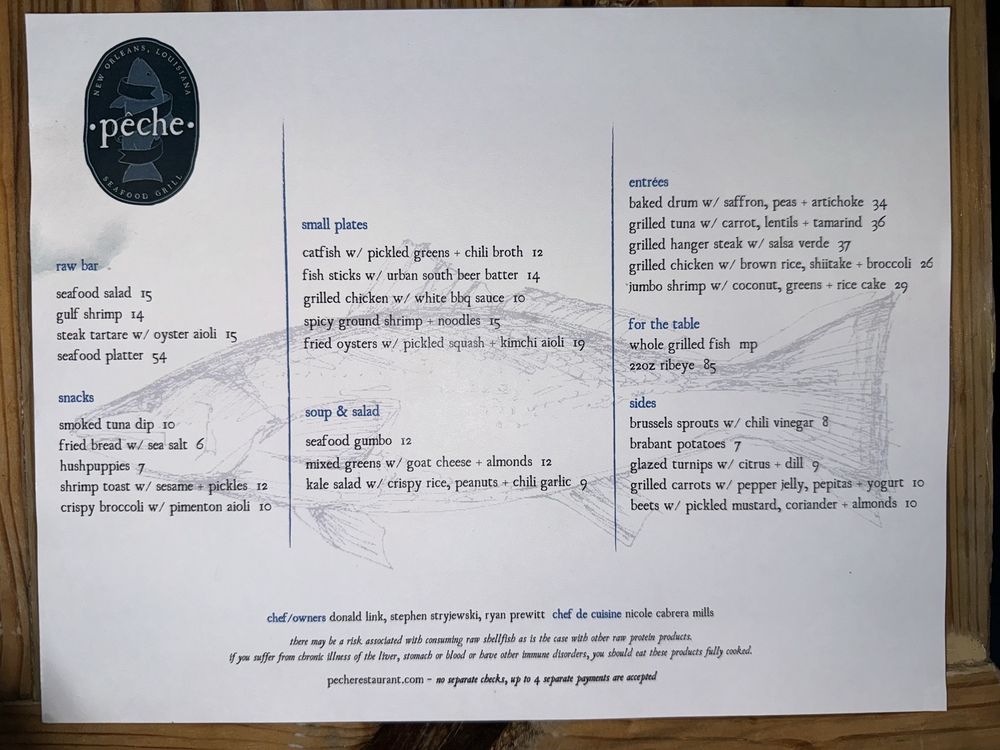 NEW ORLEANS, LOUISIANA
pêche
SEAFOOD GRILL
raw bar
seafood salad 15
gulf shrimp 14
steak tartare w/ oyster aioli 15
seafood platter 54
snacks
smoked tuna dip 10
fried bread w/ sea salt 6
hushpuppies 7
shrimp toast w/ sesame + pickles 12
crispy broccoli w/ pimenton aioli 10
small plates
catfish w/ pickled greens + chili broth 12
fish sticks w/ urban south beer batter 14
grilled chicken w/ white bbq sauce 10
spicy ground shrimp + noodles 15
fried oysters w/ pickled squash + kimchi aioli 19
soup & salad
seafood gumbo 12
mixed greens w/ goat cheese + almonds 12
kale salad w/ crispy rice, peanuts + chili garlic 9
entrées
baked drum w/ saffron, peas + artichoke 34
grilled tuna w/ carrot, lentils + tamarind 36
grilled hanger steak w/ salsa verde 37
grilled chicken w/ brown rice, shiitake + broccoli 26
jumbo shrimp w/ coconut, greens + rice cake 29
for the table
whole grilled fish mp
22oz ribeye 85
sides
brussels sprouts w/ chili vinegar 8
brabant potatoes 7
glazed turnips w/ citrus + dill 9
grilled carrots w/ pepper jelly, pepitas + yogurt 10
beets w/ pickled mustard, coriander + almonds 10
chef/owners donald link, stephen stryjewski, ryan prewitt chef de cuisine nicole cabrera mills
there may be a risk associated with consuming raw shellfish as is the case with other raw protein products.
if you suffer from chronic illness of the liver, stomach or blood or have other immune disorders, you should eat these products fully cooked.
pecherestaurant.com – no separate checks, up to 4 separate payments are accepted